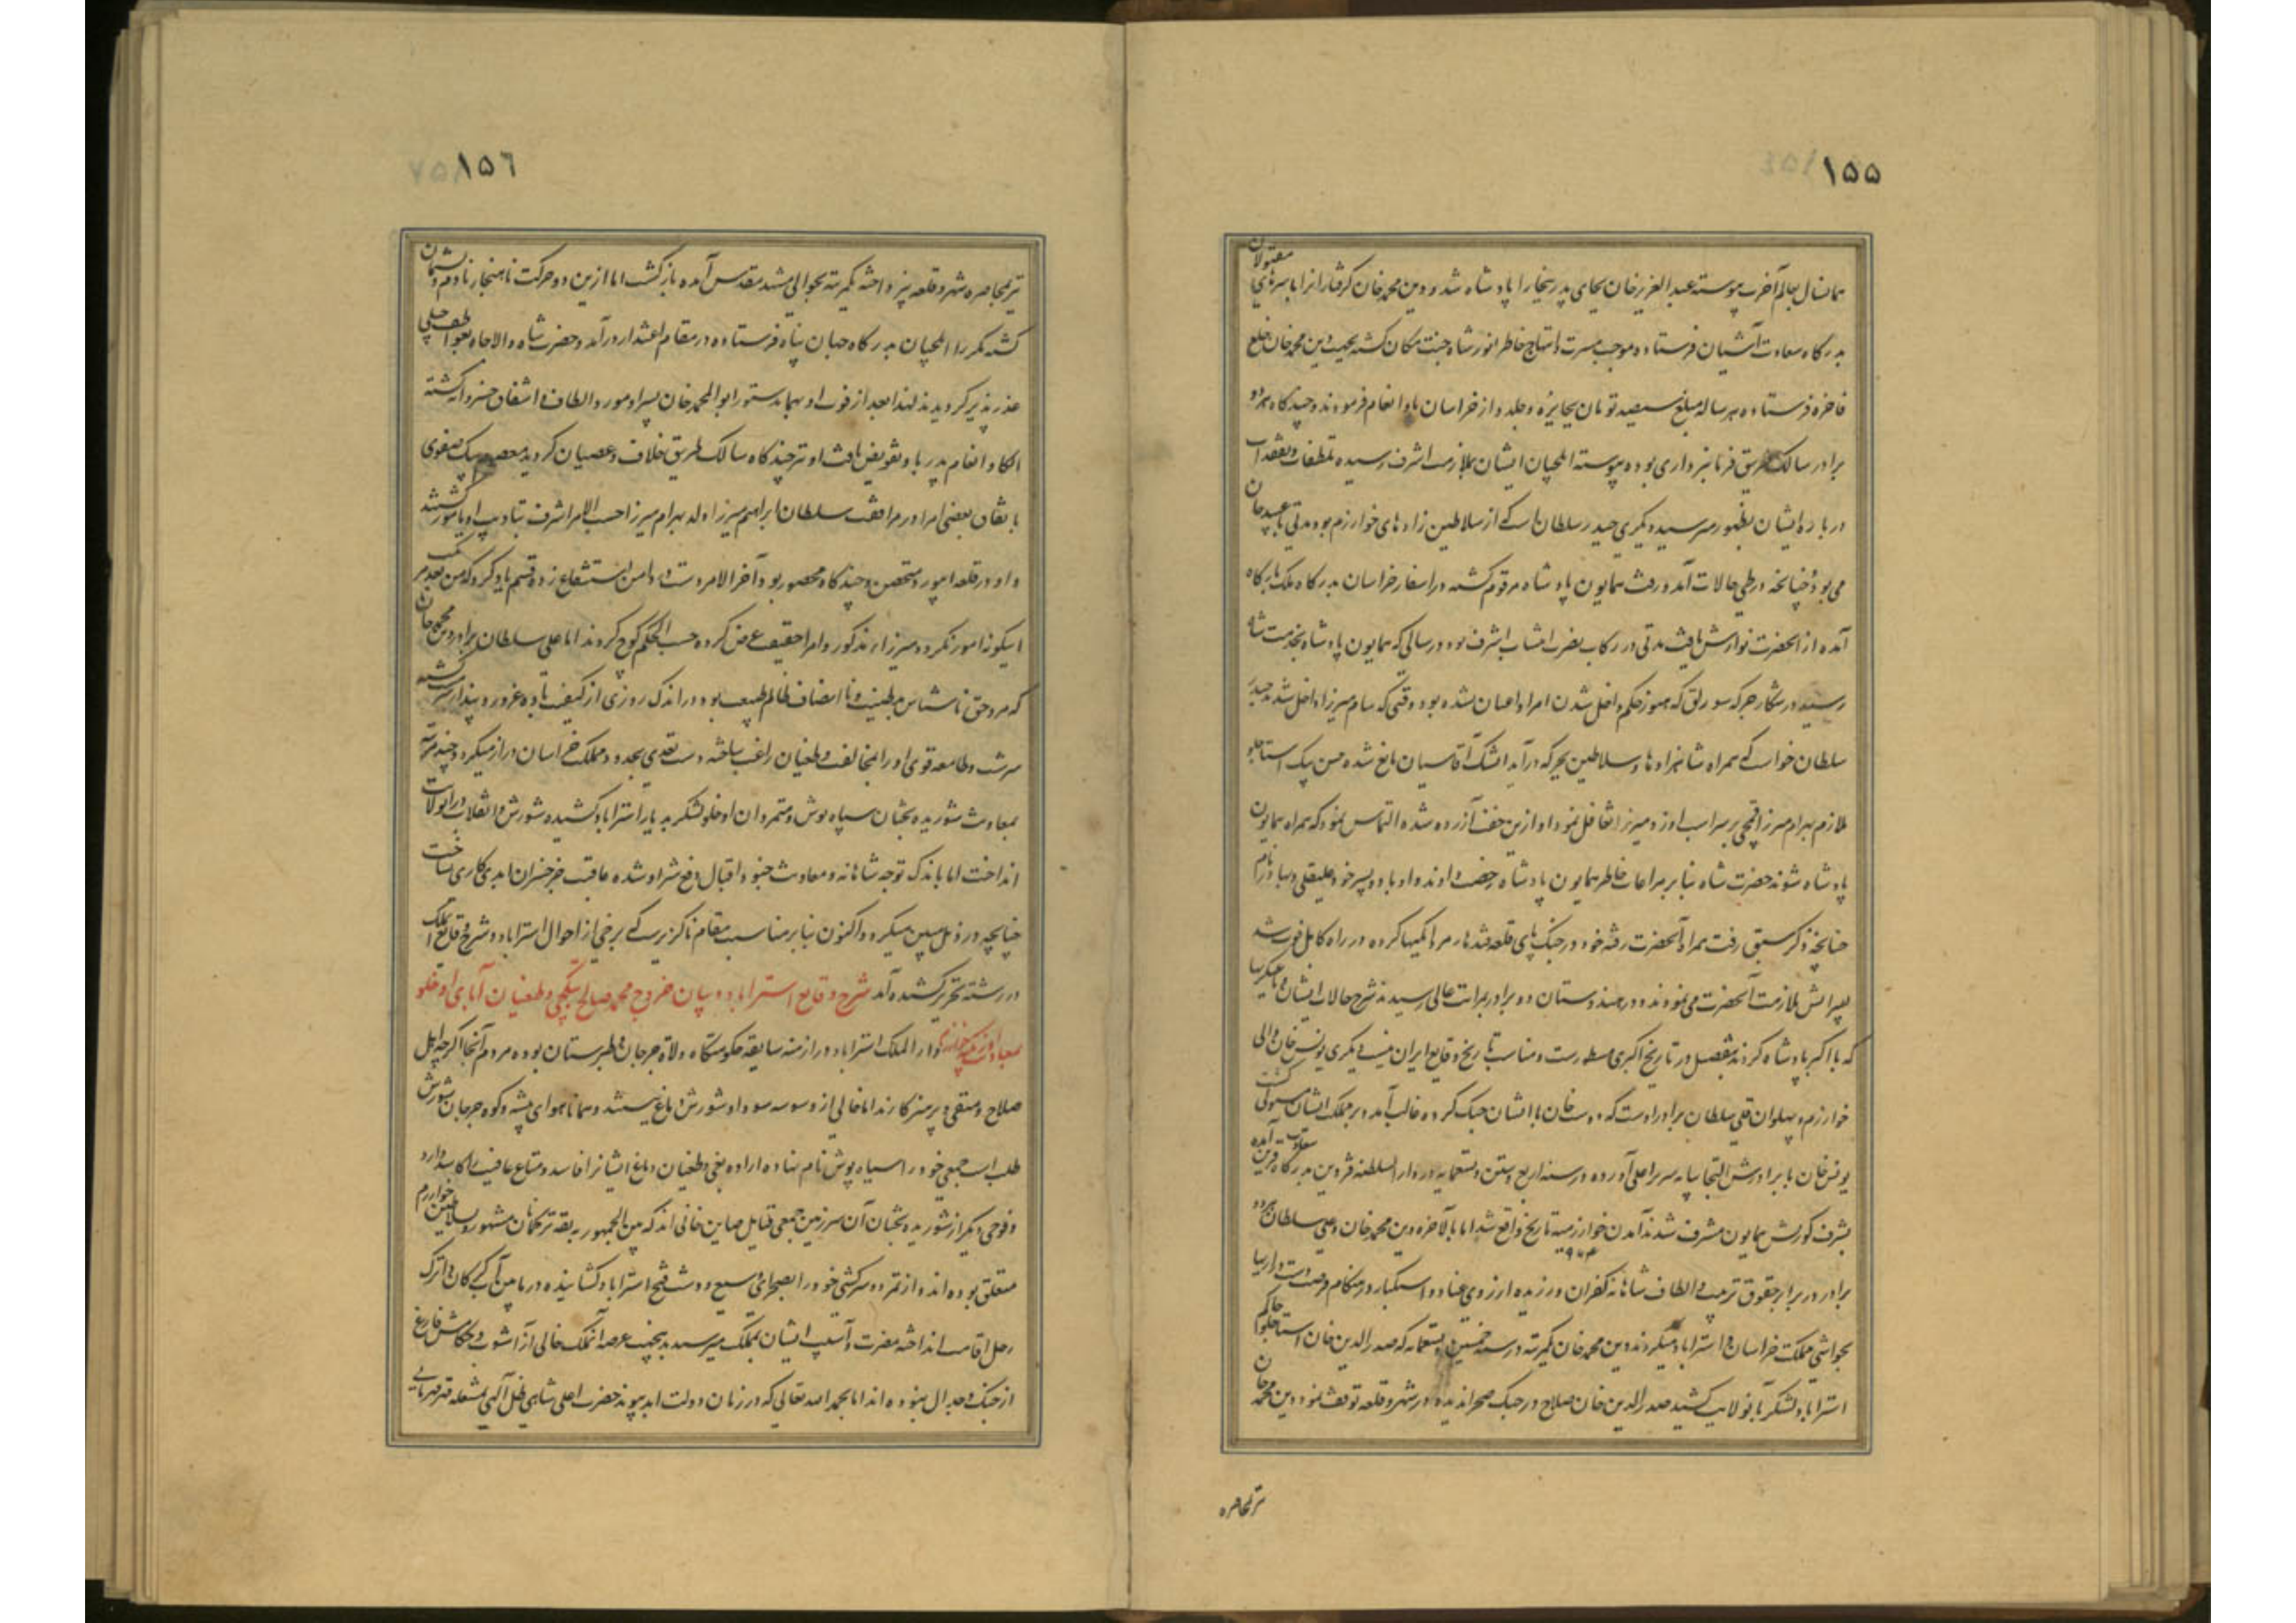 ۱۵۵
همانسال بعالم آخرت پیوسته عبد العزیز خان بجای پدر بخارا پادشاه شد و دین محمد خان گرفتارانرا با سرهای مقتولان
بدرگاه سعادت آشیان فرستاد و موجب مسرت و ابتهاج خاطر انور شاه جنت مکان گشته بجهت دین محمد خان خلع
فاخره فرستاده هر ساله مبلغ سیصد تومان بجایزه و جلدو از خراسان باو انعام فرمودند و چند گاه هر دو
برادر سالک طریق فرمانبرداری بوده پیوسته ایلچیان ایشان بملازمت اشرف رسیده تلطفات و تفقدات
درباره ایشان بظهور میرسید دیگری حیدر سلطان است که از سلاطین زادهای خوارزم بود مدتی با عبید خان
می بود چنانچه در طی حالات آمد و رفت همایون پادشاه مرقوم گشته در اسفار خراسان بدرگاه ملک بارگاه
آمده از آنحضرت نوازش یافت مدتی در رکاب نصرت انتساب اشرف بود در سالی که همایون پادشاه بخدمت شاه
رسید در شکار جرگه سورلق که هنوز حکم داخل شدن امرا و اعیان نشده بود وقتی که سام میرزا داخل شد حیدر
سلطان خواست که همراه شاهزادها و سلاطین بجرگه درآید ایشک آقاسیان مانع شده حسن بیک استاجلو
ملازم بهرام میرزا قمچی بر سر اسب او زد و میرزا تغافل نمود او ازین خفت آزرده شده التماس نمود که همراه همایون
پادشاه شوند حضرت شاه بنابر مراعات خاطر همایون پادشاه رخصت دادند و او با دو پسر خود علیقلی و بهادر نام
چنانچه ذکرش سبق رفت همراه آنحضرت رفته خود در جنک پای قلعه قندهار مردانگیها کرده در راه کابل فوت شد
پسرانش ملازمت آنحضرت می نمودند و در هندوستان دو برادر بمراتب عالی رسیدند شرح حالات ایشان و یاغیگریها
که با اکبر پادشاه کردند بتفصیل در تاریخ اکبری مسطورست و مناسب تاریخ وقایع ایران نیست دیگری یونس خان والی
خوارزم و پهلوان قلی سلطان برادر اوست که دوست خان با ایشان جنگ کرده غالب آمد و بر مملکت ایشان مستولی گشت
یونس خان با برادرش التجا بپایه سریر اعلی آورده در سنه اربع و ستین و تسعمایه در دار السلطنه قزوین بدرگاه آمده
بشرف کورنش همایون مشرف شدند آمدن خوارزمیه تاریخ واقع شد اما بالاخره دین محمد خان و علی سلطان هر دو
۹۶۴
برادر در برابر حقوق تربیت و الطاف شاهانه کفران ورزیده از روی عناد و استکبار در هنگام فرصت دست درازیها
بحواشی مملکت خراسان و استراباد میکردند دین محمد خان یکمرتبه در سنه خمسین و تسعمایه که صدر الدین خان استاجلو حاکم
استراباد بود لشکر بآنولایت کشید صدر الدین خان صلاح در جنک صحرا ندیده در شهر و قلعه توقف نمود دین محمد خان
ترک محاصره
۱۵۶
ترک محاصره شهر و قلعه نپرداخته یکمرتبه بحوالی مشهد مقدس آمده بازگشت اما ازین دو حرکت ناهنجار نادم و پشیمان
گشته مکررا ایلچیان بدرگاه جهان پناه فرستاده در مقام اعتذار درآمد و حضرت شاه والاجاه بعواطف جبلی
عذر پذیر گردیدند لهذا بعد از فوت او بهمان دستور ابو المحمد خان پسر او مورد الطاف و اشفاق خسروانه گشته
الکا و انعام پدر باو تفویض یافت او نیز چند گاه سالک طریق خلاف و عصیان گردید معصوم بیک صفوی
باتفاق بعضی امرا در مرافقت سلطان ابراهیم میرزا ولد بهرام میرزا حسب الامر اشرف بتادیب او مامور گشتند
و او در قلعه ابیورد متحصن و چند گاه محصور بود آخر الامر دست در دامن استشفاع زده قسم یاد کرد که من بعد مرتکب
اینگونه امور نگردد میرزاء مذکور و امرا حقیقت عرض کرده حسب الحکم کوچ کردند اما علی سلطان برادر دین محمد خان
که مرد حق ناشناس بدطینت و ناانصاف ظالم طبیعت بود در اندک روزی از کیفیت باده غرور و پندار سرکشته
سرشت و طامعه قوی او را بمخالفت و طغیان راغب ساخته دست تعدی بحدود مملکت خراسان دراز میکرد و چند مرتبه
بمعاونت شوریده بختان سیاه پوش و متمردان اوخلو لشکر بدیار استراباد کشیده شورش و انقلاب در آنولایت
انداخت اما باندک توجه شاهانه و معاونت جنود اقبال دفع شر او شده عاقبت جز خسران ابدی کاری نساخت
چنانچه در ذیل مبین میگردد اکنون بنابر مناسبت مقام ناگزیرست که برخی از احوال استراباد و شرح وقایع آنملک
در رشته تحریر کشیده آمد شرح وقایع استراباد و بیان خروج محمد صالح بیتکچی و طغیان آبای اوخلو
بمعاونت اوزبکیه خوارزم دار الملک استراباد در ازمنه سابقه حکومتگاه ولاة جرجان و طبرستان بوده مردم آنجا اگر چه اهل
صلاح و متقی و پرهیزکارند اما خالی از وسوسه سودا و شورش دماغ نیستند و همانا هوای بیشه و کوه جرجان شورش
طلب است جمعی خود را سیاه پوش نام نهاده اراده بغی و طغیان دماغ ایشانرا فاسد و متاع عافیت را کاسد دارد
و فوجی دیگر از شوریده بختان آن سرزمین جمعی قبایل صاین خانی اند که بین الجمهور به یقه ترکمان مشهور و بسلاطین خوارزم
متعلق بوده اند و از تمرد و سرکشی خود را بصحرای وسیع و دشت فسیح استراباد کشانیده در مابین آب گرکان و اترک
رحل اقامت انداخته مضرت و آسیب ایشان بملک میرسید بدین جهت عرصه آنملک خالی از آشوب و حکامش فارغ
از جنک و جدال نبوده اند اما بحمد الله تعالی که در زمان دولت ابد پیوند حضرت اعلی شاهی ظل الهی بشعله قهر قهرمانی